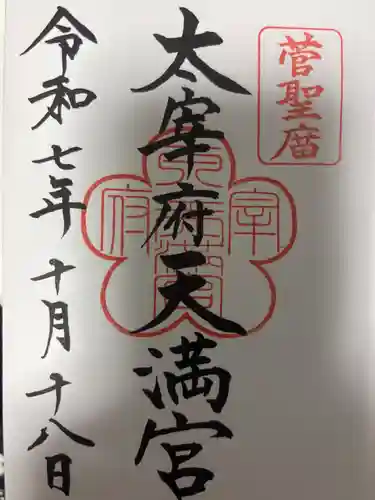 菅聖庿
太宰府天満宮
令和七年十月十八日